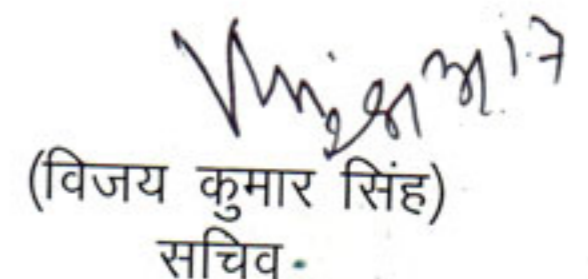 (विजय कुमार सिंह)
सचिव